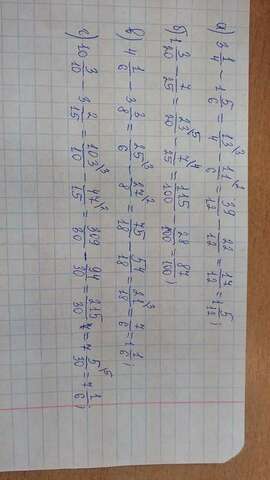 а) 3 1/4 − 1 5/6 = 13/4 ³ − 11/6 ² = 39/12 − 22/12 = 17/12 = 1 5/12;
б) 1 3/20 − 7/25 = 23/20 ⁵ − 7/25 ⁴ = 115/100 − 28/100 = 87/100;
в) 4 1/6 − 3 3/8 = 25/6 ³ − 27/8 ² = 75/18 − 54/18 = 21/18 ³ = 7/6 = 1 1/6;
г) 10 3/10 − 3 2/15 = 103/10 ³ − 47/15 ² = 309/30 − 94/30 = 215/30 = 7 5/30 ⁵ = 7 1/6;